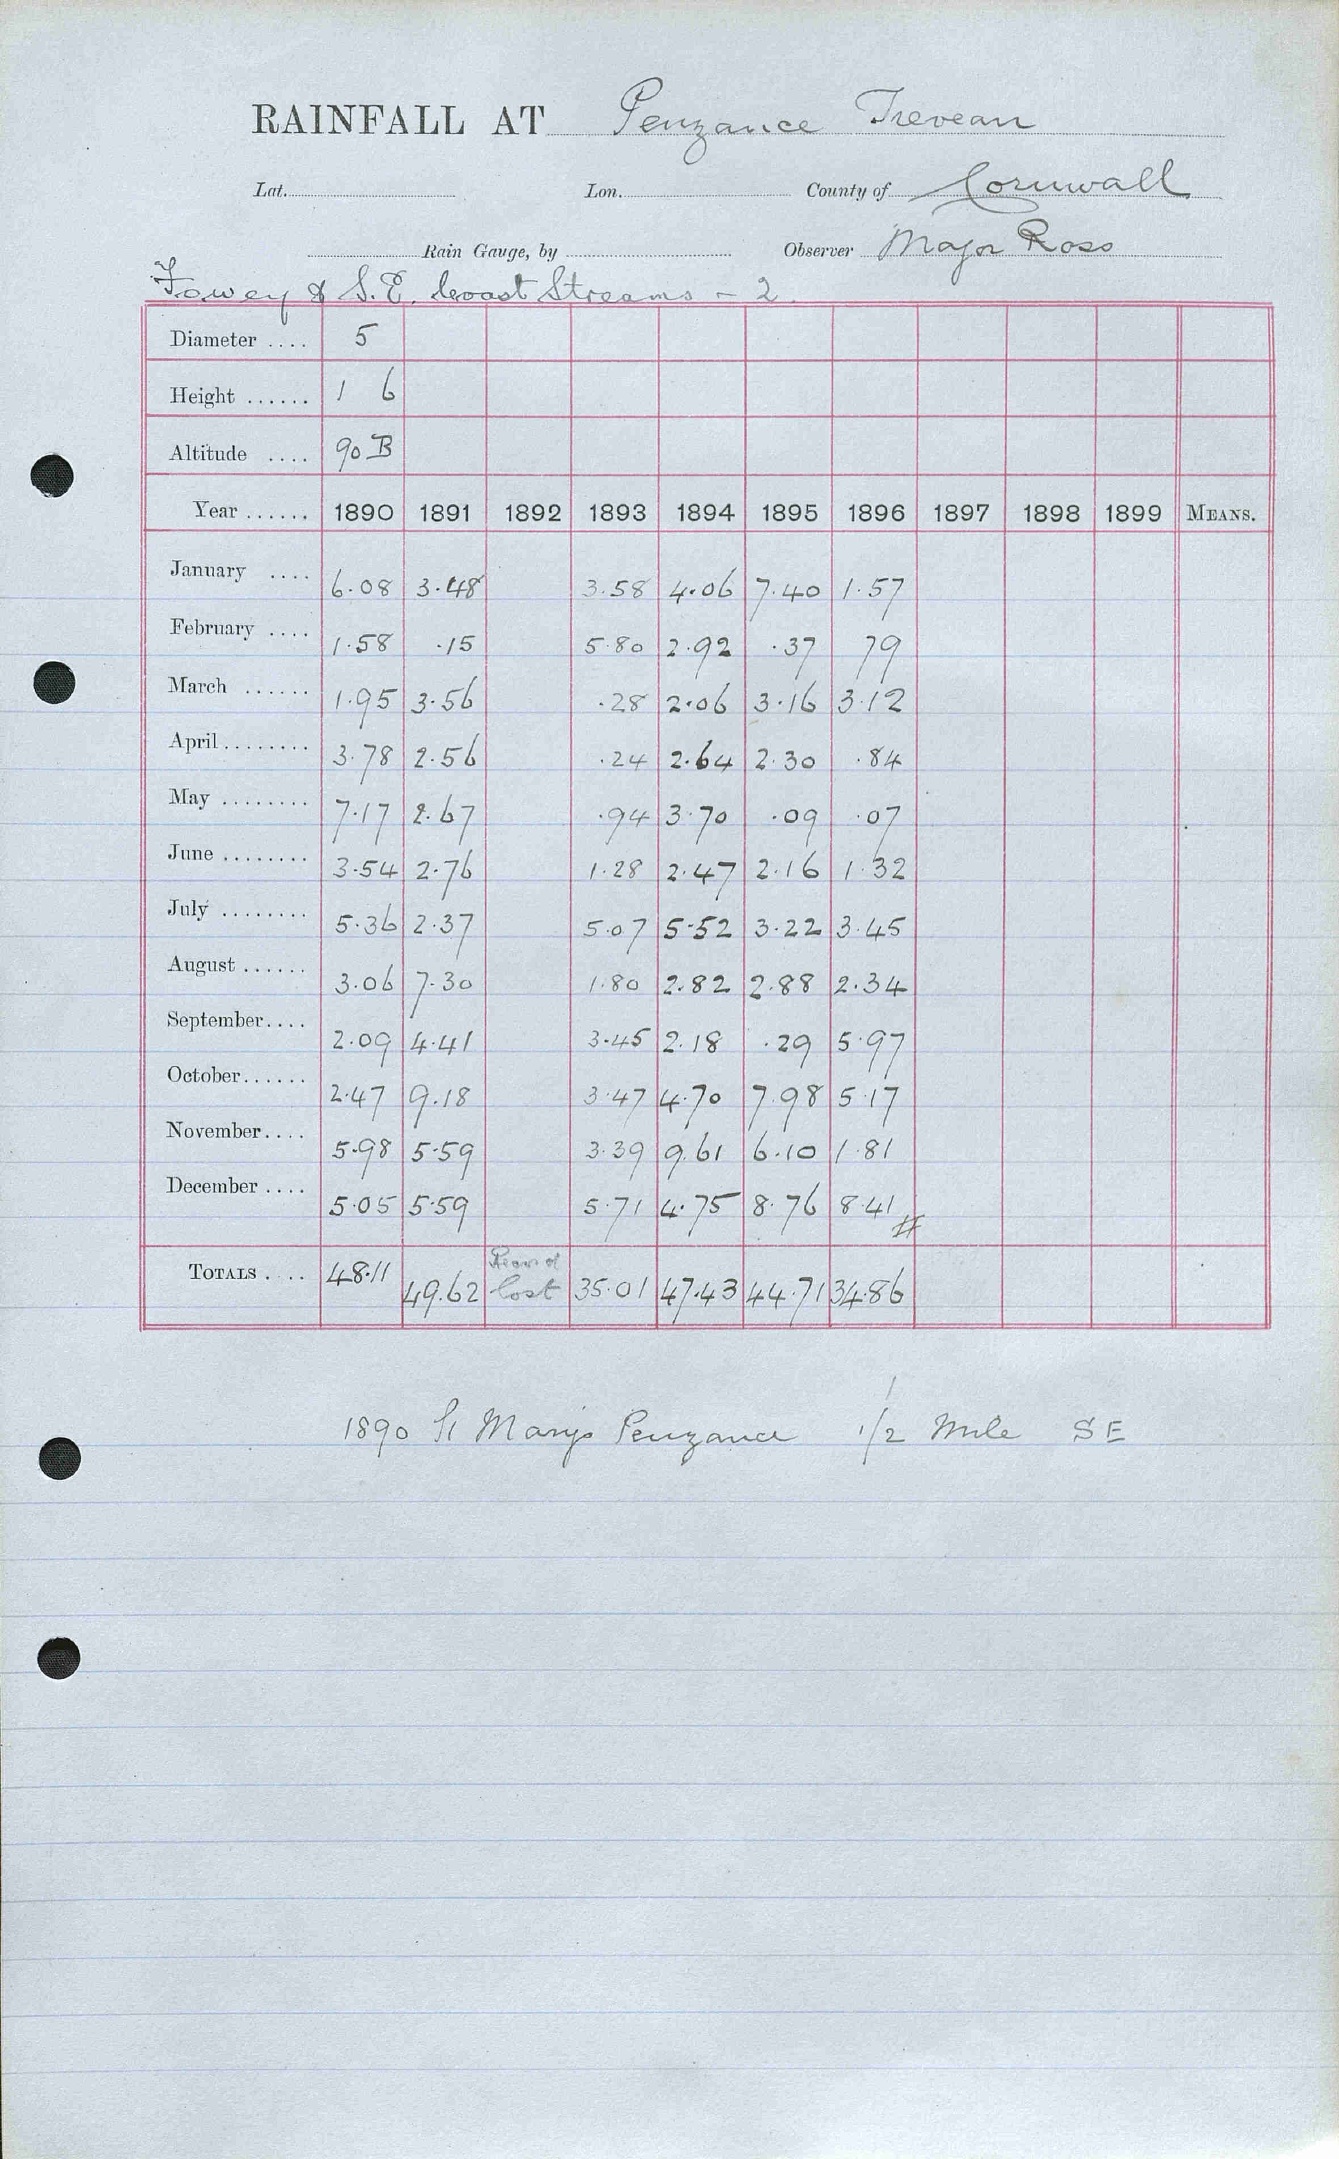 RAINFALL AT Penzance Trevean
Lat. Lon. County of Cornwall
Rain Gauge, by Observer Major Ross
Fowey & S.E. Coast Streams - 2.
Diameter .... 5
Height ...... 1 6
Altitude .... 90 B
Year ...... 1890 1891 1892 1893 1894 1895 1896 1897 1898 1899 MEANS.
January .... 6.08 3.48 3.58 4.06 7.40 1.57
February .... 1.58 .15 5.80 2.92 .37 79
March ...... 1.95 3.56 .28 2.06 3.16 3.12
April ........ 3.78 2.56 .24 2.64 2.30 .84
May ........ 7.17 2.67 .94 3.70 .09 .07
June ........ 3.54 2.76 1.28 2.47 2.16 1.32
July ........ 5.36 2.37 5.07 5.52 3.22 3.45
August ...... 3.06 7.30 1.80 2.82 2.88 2.34
September .... 2.09 4.41 3.45 2.18 .29 5.97
October ...... 2.47 9.18 3.47 4.70 7.98 5.17
November .... 5.98 5.59 3.39 9.61 6.10 1.81
December .... 5.05 5.59 5.71 4.75 8.76 8.41 #
TOTALS .... 48.11 49.62 Record lost 35.01 47.43 44.71 34.86
1890 St Marys Penzance 1/2 Mile SE